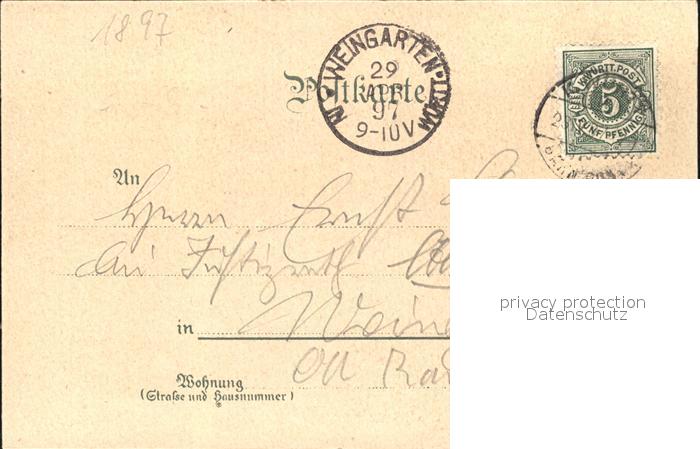 1897
IN WEINGARTEN·WÜRTT.
29
APR
97
9-10V
Postkarte
K. WÜRTT. POST
5
FÜNF PFENNIG
An
Herrn Ernst
in
Wein
OA Ra
Wohnung
(Straße und Hausnummer)
privacy protection
Datenschutz